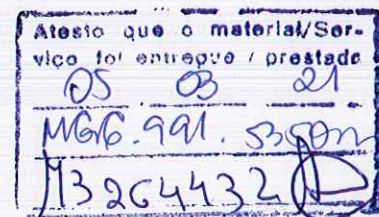 Atesto que o material/Ser-
viço foi entregue / prestado
05 03 21
MG16.991.535
M3264432